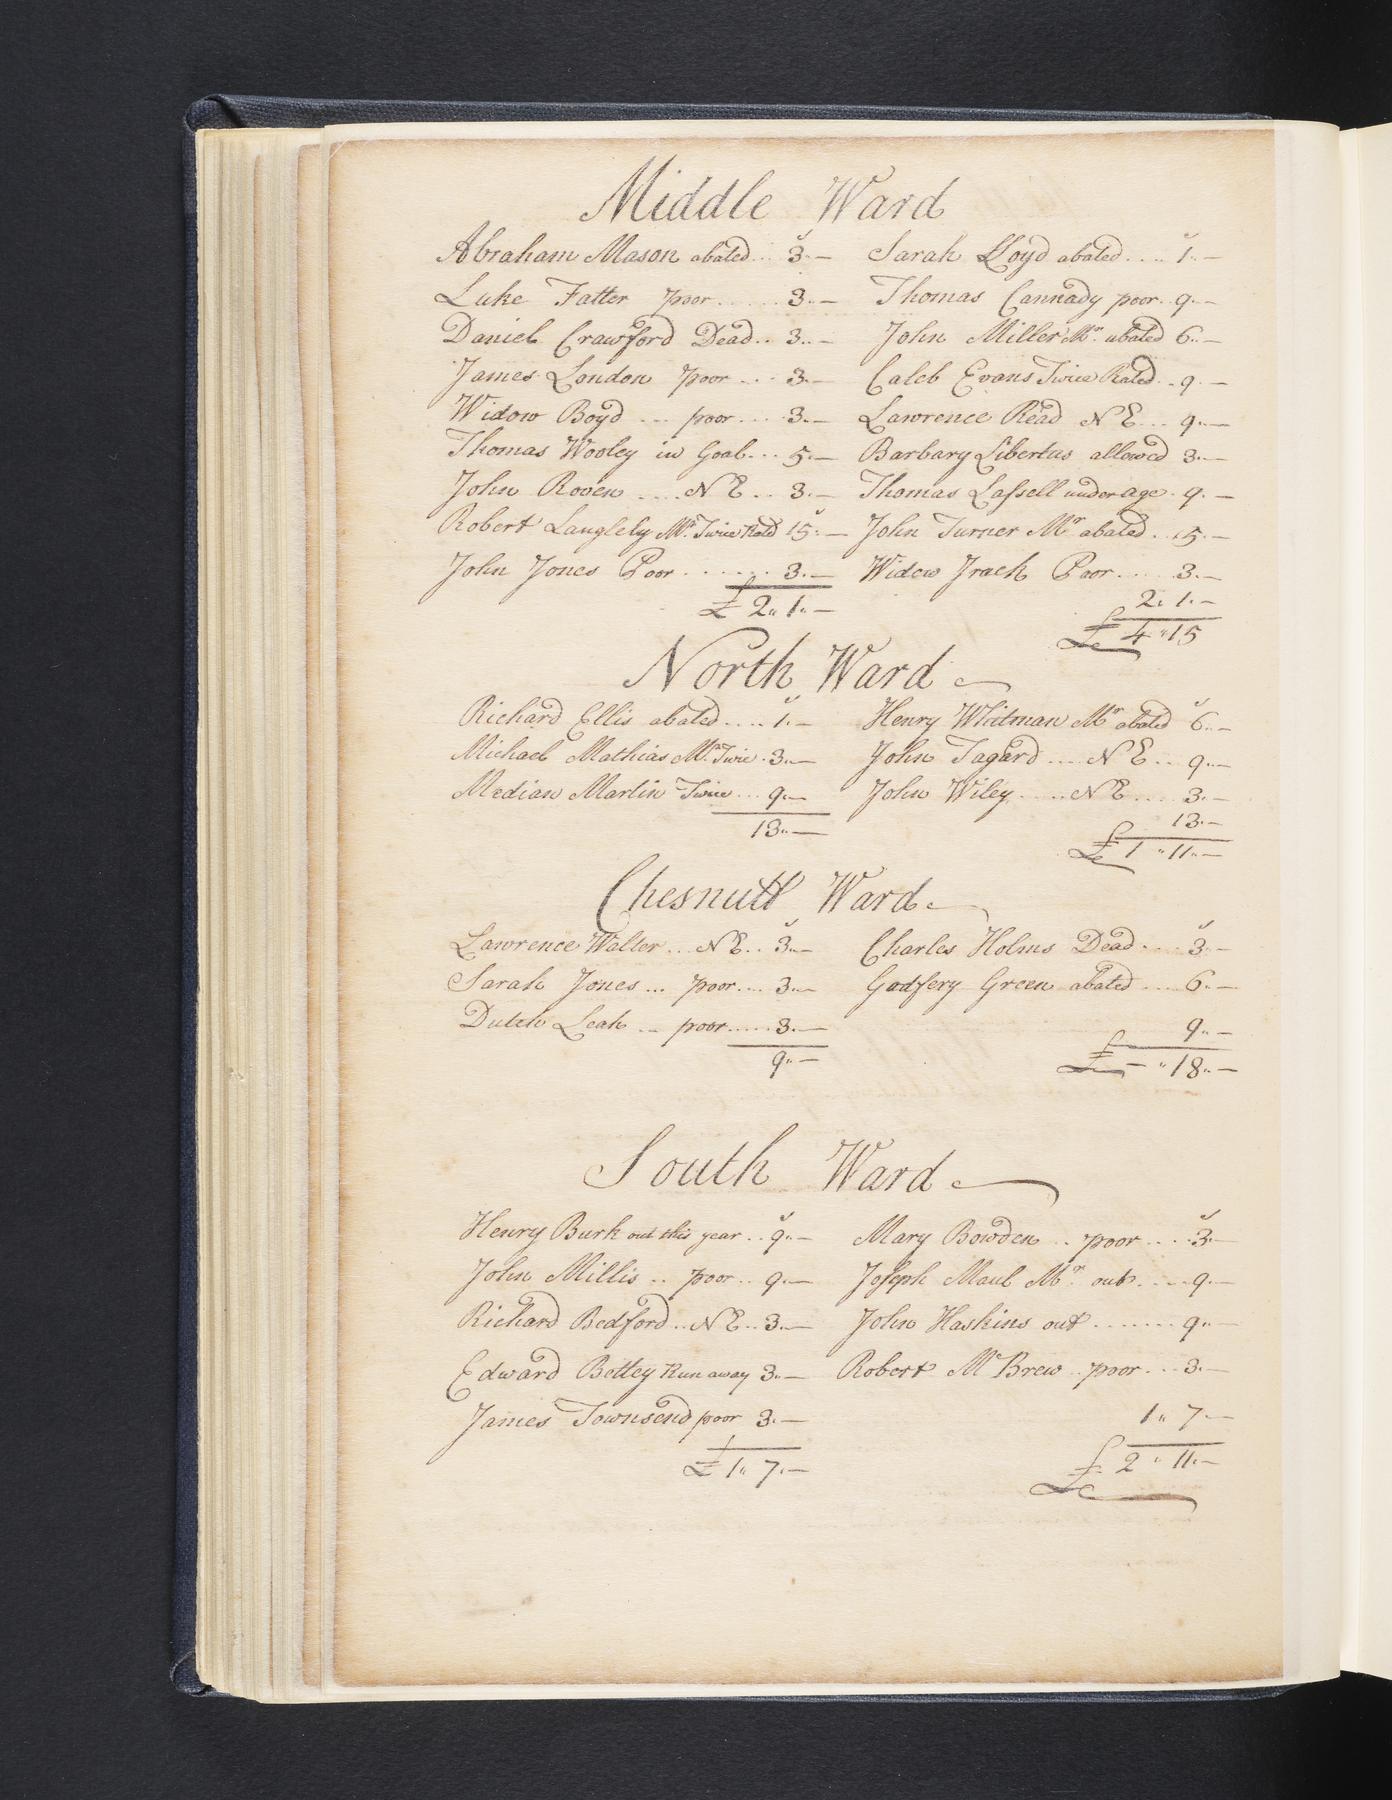 Middle Ward
Abraham Mason abated ... 3..—
Luke Fatter poor ...... 3..—
Daniel Crawford Dead .. 3..—
James London poor ... 3..—
Widow Boyd ... poor .... 3..—
Thomas Wooley in Goal ... 5..—
John Roven .... N E .. 3..—
Robert Langlely Mr. Twice Rated 15..—
John Jones Poor ....... 3..—
£ 2.. 1..—
Sarah Lloyd abated .... 1..—
Thomas Cannady poor .. 9..—
John Miller Mr. abated 6..—
Caleb Evans Twice Rated .. 9..—
Lawrence Read N E ... 9..—
Barbary Libertus allowed 3..—
Thomas Lassell under age . 9..—
John Turner Mr abated .. 15..—
Widow Frach Poor ..... 3..—
2.. 1..—
£ 4 " 15
North Ward
Richard Ellis abated .... 1..—
Michael Mathias Mr. Twic . 3..—
Median Martin Twice ... 9..—
13..—
Henry Whitman Mr abated 6..—
John Tagard .... N E ... 9..—
John Wiley ..... N E .... 3..—
13..—
£ 1 " 11..—
Chesnutt Ward
Lawrence Walter ... N E .. 3..—
Sarah Jones ... poor .... 3..—
Dutch Leah ... poor ..... 3..—
9..—
Charles Holms Dead .... 3..—
Godfery Green abated .... 6..—
9..—
£ — " 18..—
South Ward
Henry Burk out this year .. 9..—
John Millis .. poor .. 9..—
Richard Bedford .. N E .. 3..—
Edward Bettey Run away 3..—
James Townsend poor 3..—
£ 1.. 7..—
Mary Bowden .. poor .... 3..—
Joseph Maul Mr. out .... 9..—
John Haskins out ....... 9..—
Robert Mc Brew .. poor ... 3..—
1.. 7..—
£ 2 " 11..—